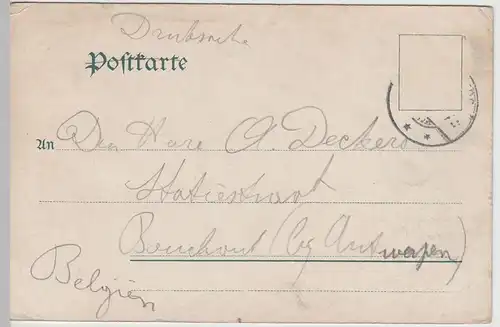 Drucksache
Postkarte
An Den Here A. Deckers
Statiestraat
Bouchout (bij Antwerpen)
Belgien